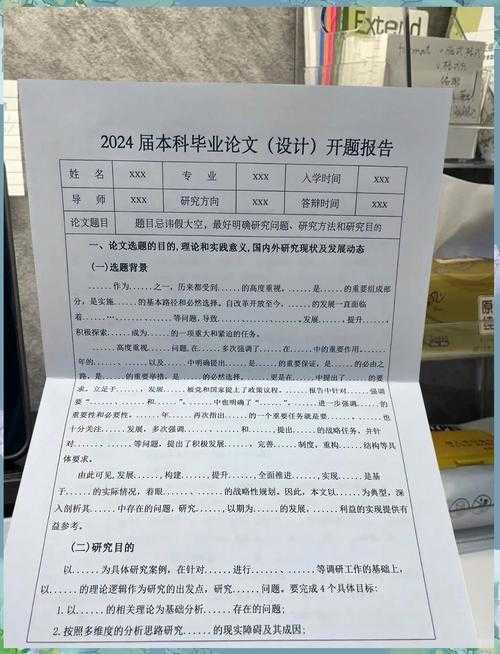 Extend
2024 届本科毕业论文（设计）开题报告
姓 名 xxx 专 业 xxx 入学时间 xxx
导 师 xxx 研究方向 xxx 答辩时间 xxx
论文题目 题目忌讳假大空，最好明确研究问题、研究方法和研究目的
一、论文选题的目的,理论和实践意义,国内外研究现状及发展动态
(一)选题背景
......作为......之一，历来都受到......的高度重视。......是......的重要组成部
分，是实施......的基本路径和必然选择。自改革开放至今，......的发展一直面临
着......…、......等问题,导致......、......、......发展、......提升，
积极探索......成为......的一项重大和紧迫的任务。
......高度重视......问题,在......多次强调了......在......中的重要作用。
年的......、......以及......中明确提出......是......的重要保证，是......的必由之
路，是......的重要举措，是......的必然选择。......更是在......中提出了......的要
求，立足于......，发展......，被党和国家提上了政策议程。......报告中针对......强调
要“......和......”，......中也明确了“......”，......进一步强调......的
重要性和必要性。......年......再次指出......的一个重要任务就是要......，也
十分关注......发展，多次强调......、......和......提出......的战略任务，并针
对......、......等问题，提出了积极发展......，完善......制度，重构......结构等具
体要求。
由此可见,发展......,构建......，提升......,全面推进......,实现......是基
于......的实际情况，着眼......、......的战略性规划。因此，本文以......为典型，深
入剖析其......中存在的问题，研究......,以期为......的发展，......利益的实现提供有
益参考。
(二)研究目的
以......为具体研究案例，在针对......进行......、......等调研工作的基础上，
以......的理论逻辑作为研究的出发点，研究......问题。要完成 4 个具体目标：
1.以......的相关理论为基础分析......存在的问题;
2.按照多维度的分析思路研究......的现实障碍及其成因;